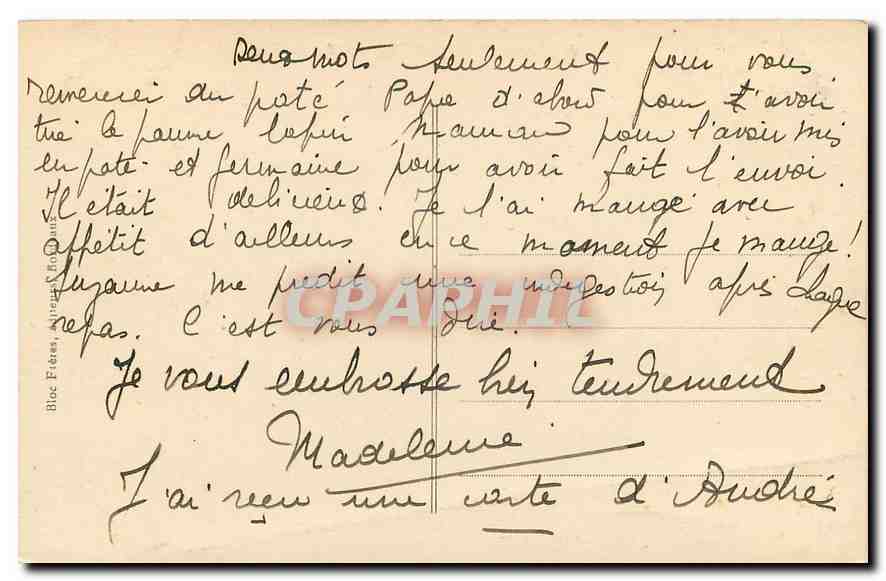 Deux mots seulement pour vous
remercier du paté Papa d'abord pour l'avoir
tué le pauvre lapin Maman pour l'avoir mis
en paté - et Germaine pour avoir fait l'envoi.
Il était delicieux. Je l'ai mangé avec
appétit d'ailleurs en ce moment je mange!
Suzanne me predit une indigestion après chaque
repas. C'est vous dire.
Je vous embrasse bien tendrement
Madeleine
J'ai reçu une carte d'André
Bloc Frères, éditeurs, Bordeaux
CPAPHIL